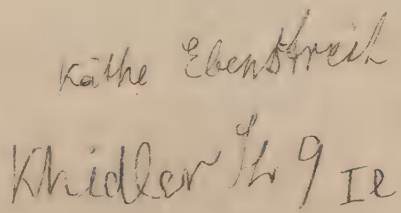 Käthe Ebenstreit
Khidler Str 9 II